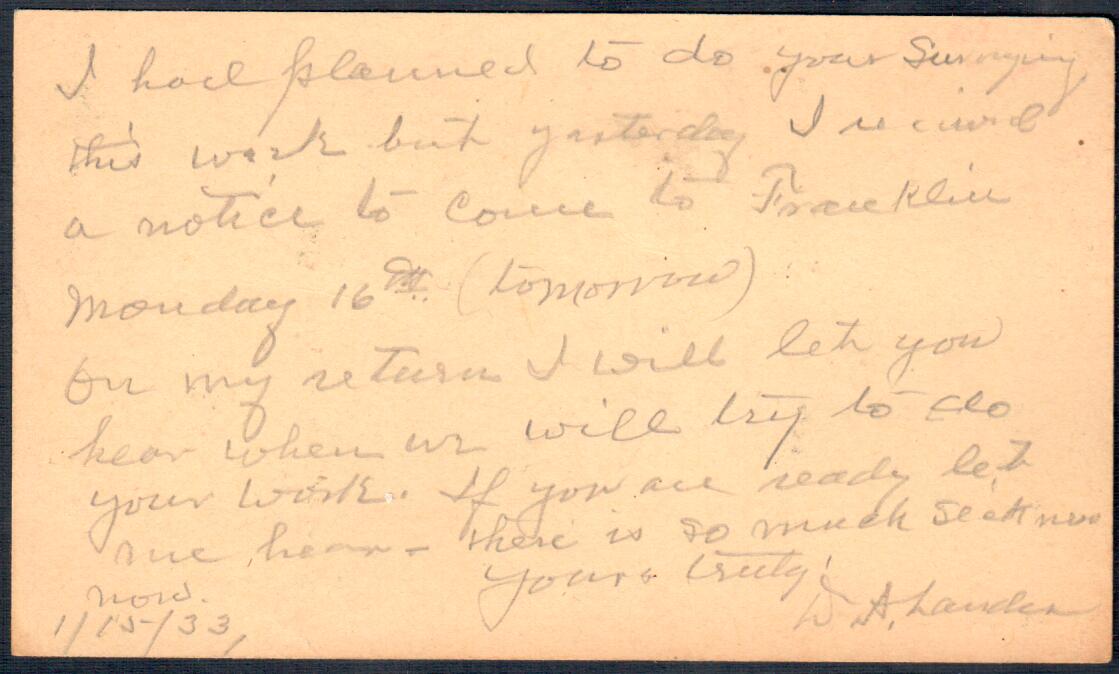 I had planned to do your Surveying
this work but yasterday I received
a notice to come to Franklin
Monday 16th (tomorrow)
On my return I will let you
hear when we will try to do
your work. If you are ready let
me hear - there is so much sickness
now. Yours truly,
1/15/33, D A. Landen